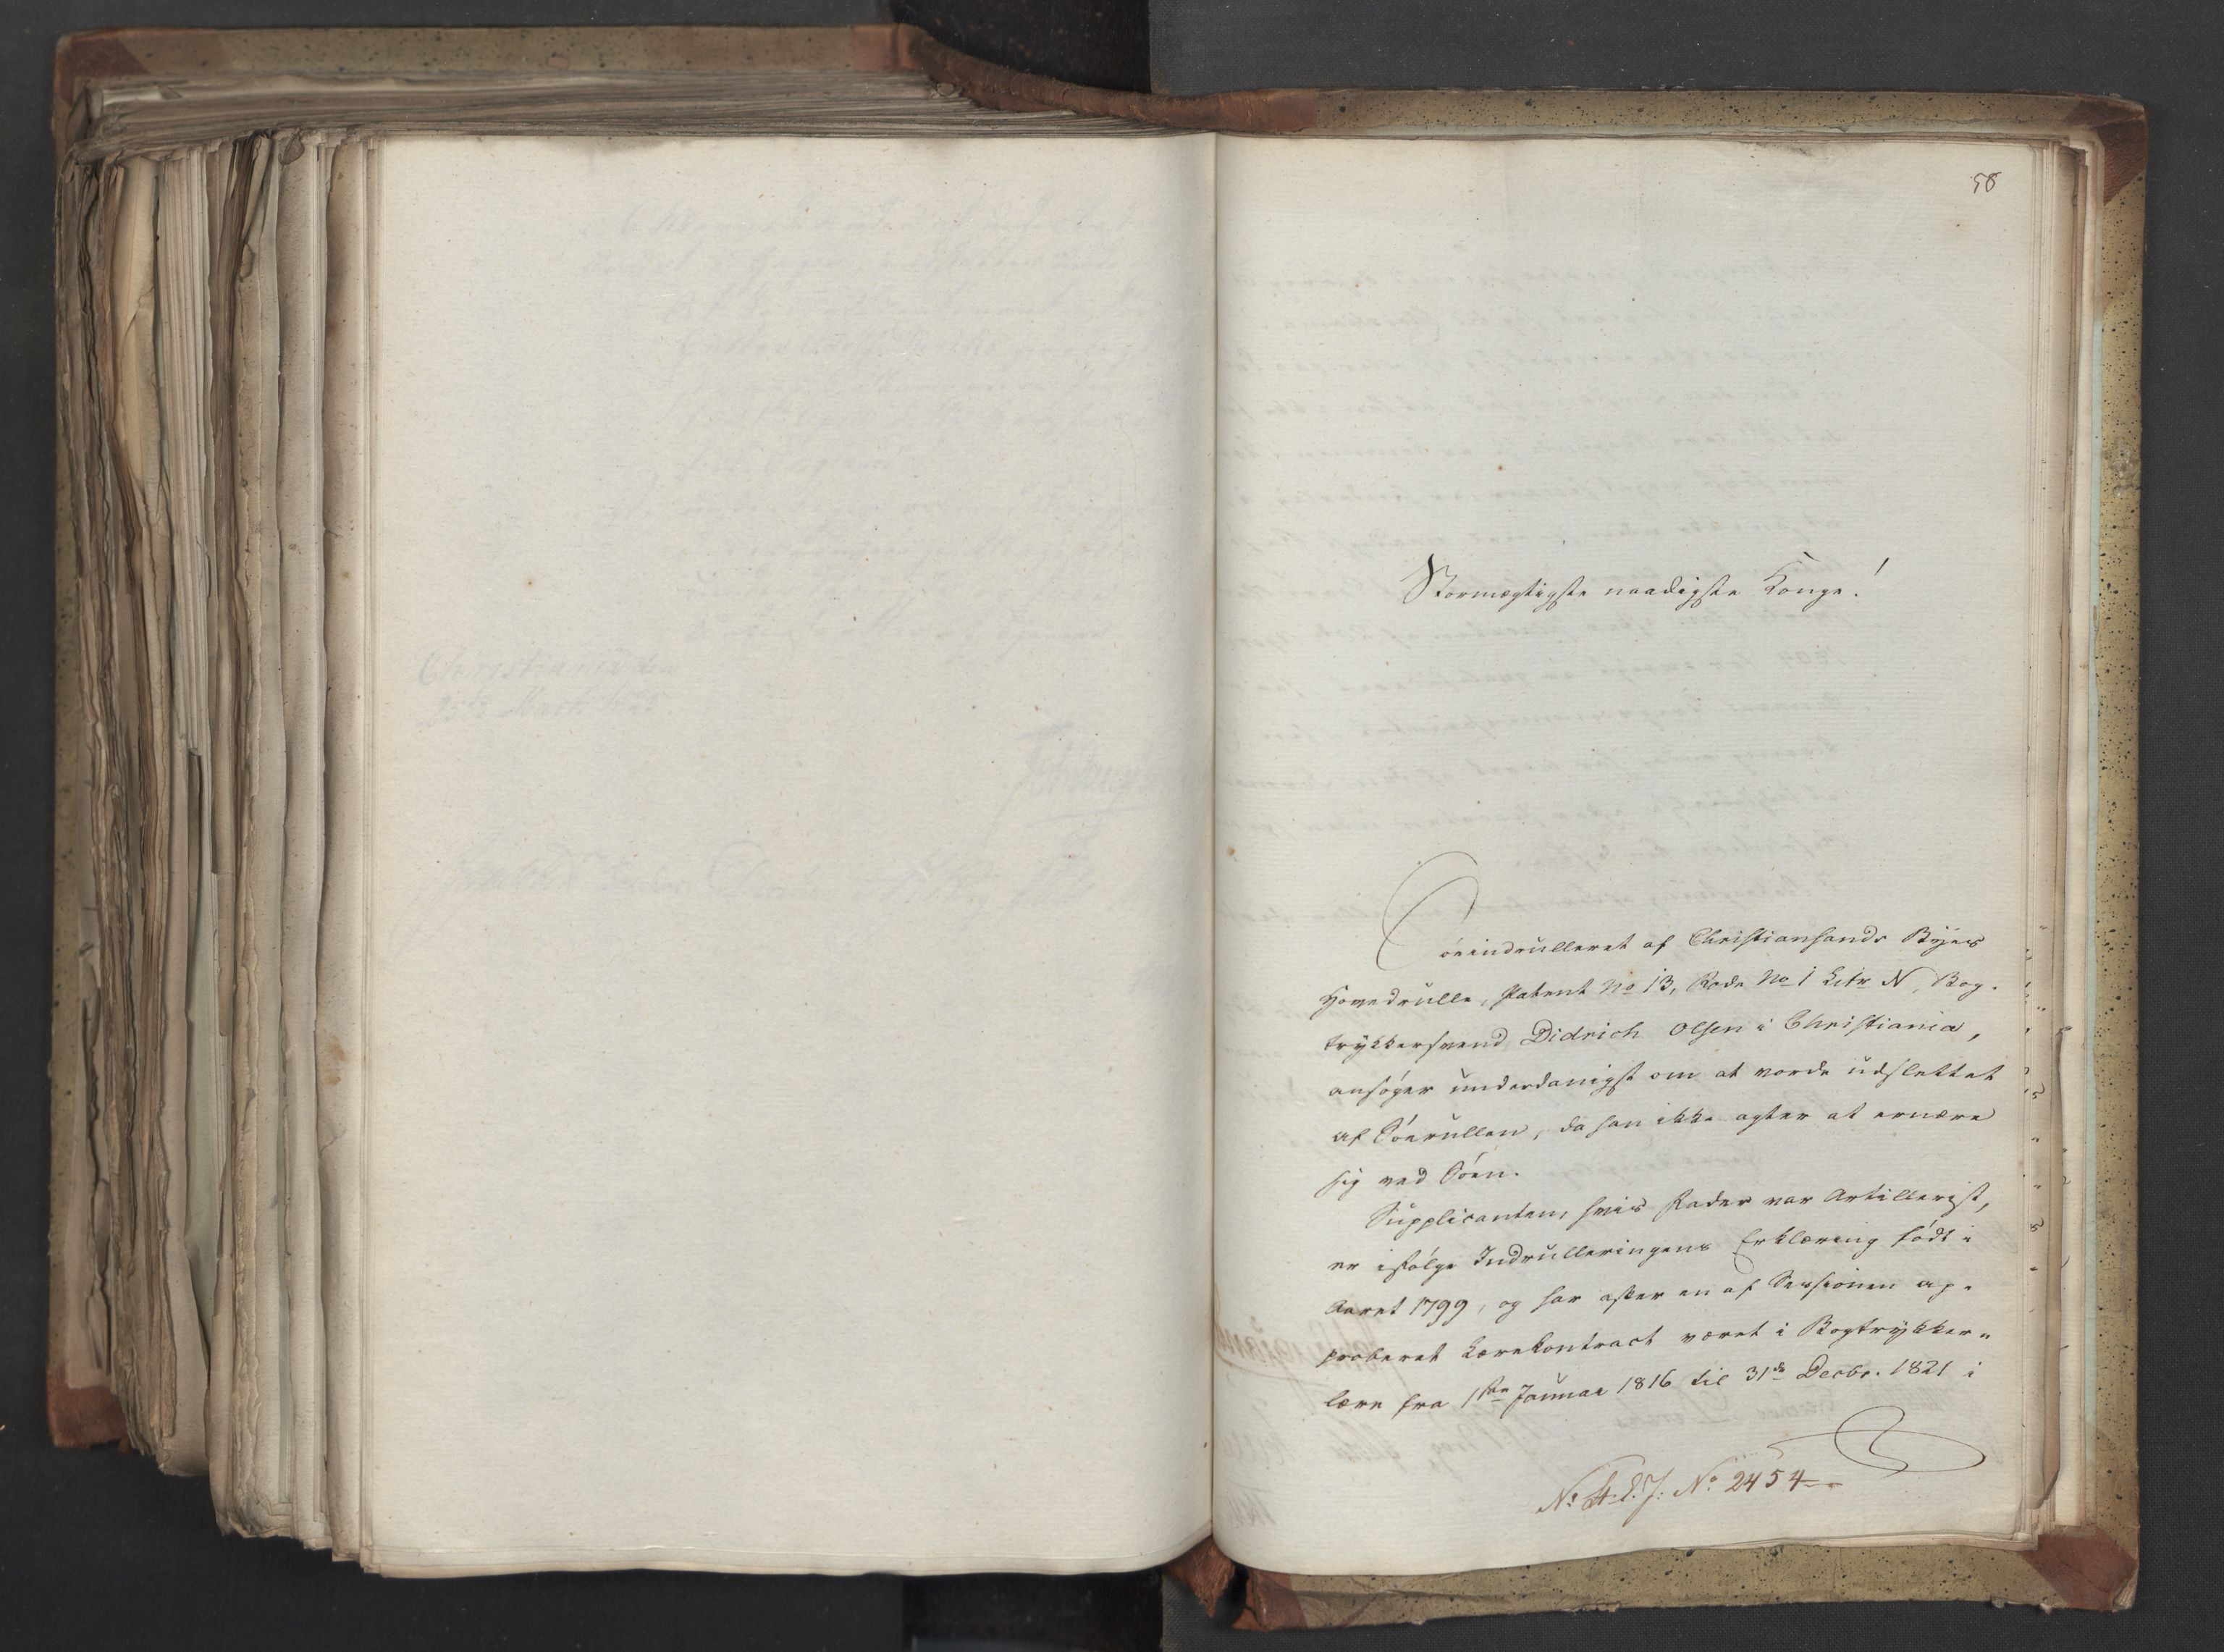 58
Stormægtigste naadigste Konge!
Søeindrulleret af Christiansands Byes
Hovedrulle, Patent No 13, Rode No 1 Litr N, Bog-
trykkersvend Didrich Olsen i Christiania,
ansøger underdanigst om at vorde udslettet
af Søerullen, da han ikke agter at ernære
sig ved Søen.
Supplicanten, hvis Fader var Artillerist,
er ifølge Indrulleringens Erklæring født i
Aaret 1799, og har efter en af Sessionen ap-
proberet Lærekontract været i Bogtrykker-
lære fra 1ste Januar 1816 til 31de Decbr. 1821 i
No 2454